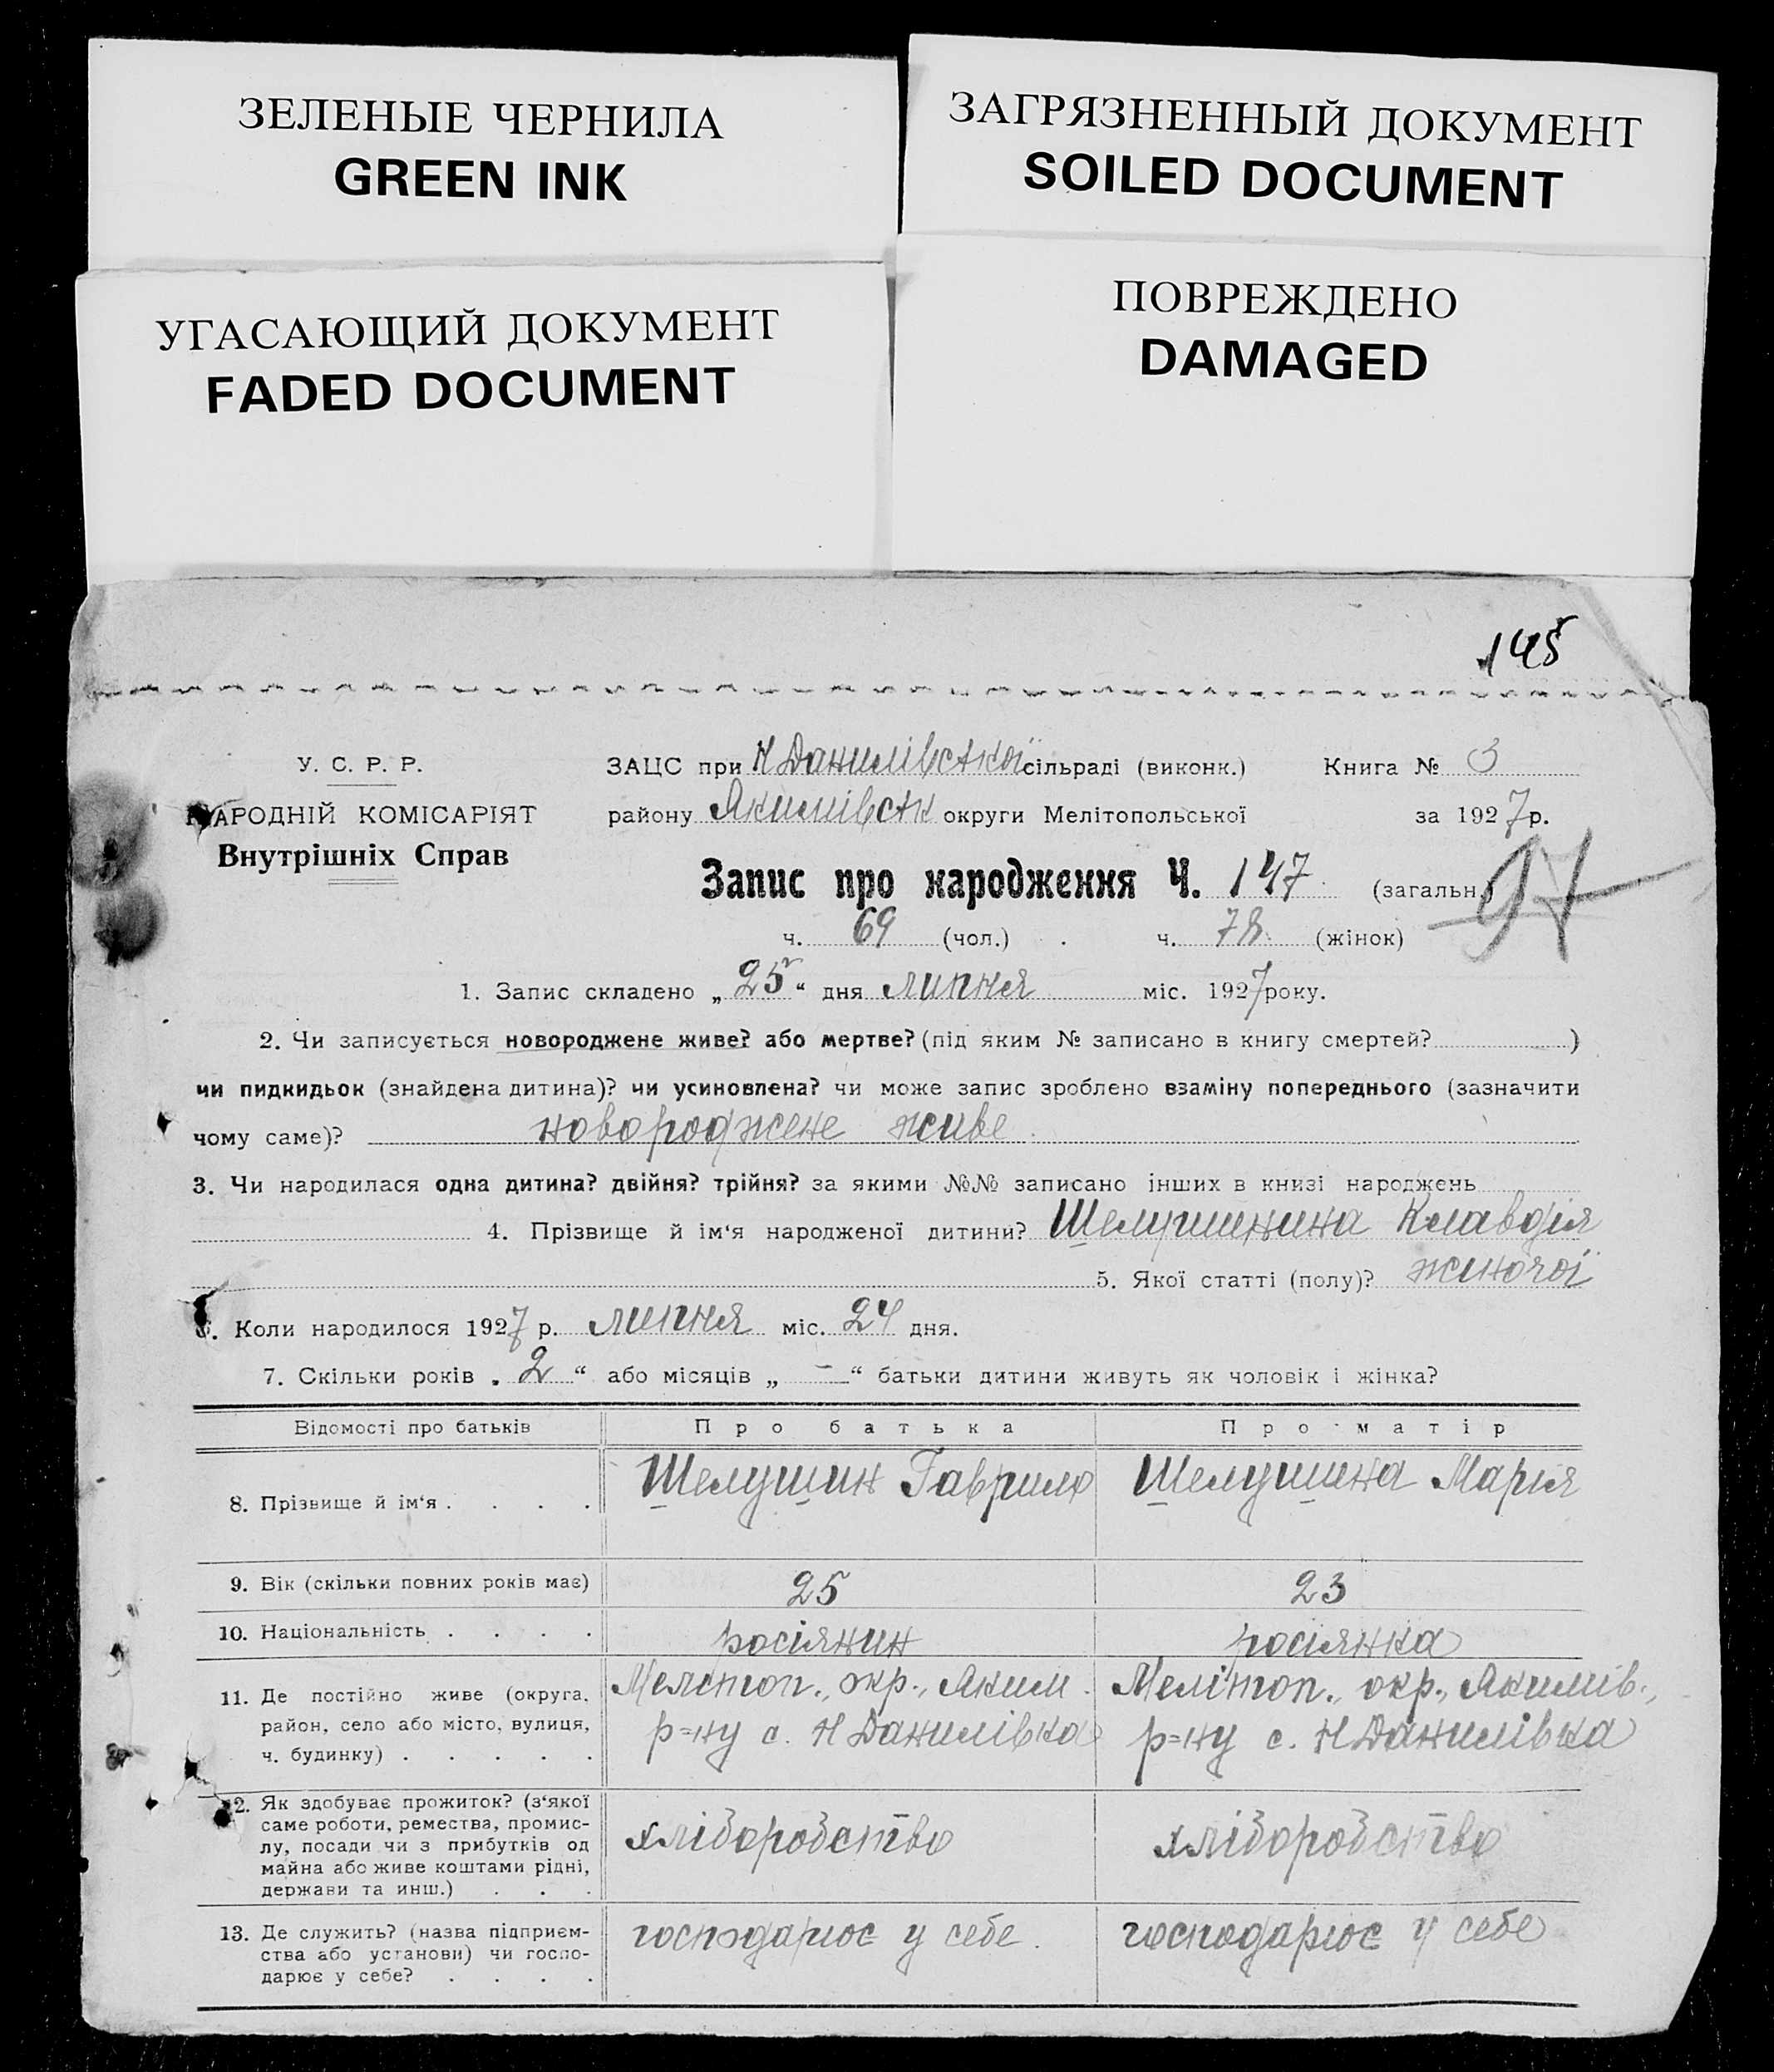 ЗЕЛЕНЫЕ ЧЕРНИЛА
GREEN INK
ЗАГРЯЗНЕННЫЙ ДОКУМЕНТ
SOILED DOCUMENT
УГАСАЮЩИЙ ДОКУМЕНТ
FADED DOCUMENT
ПОВРЕЖДЕНО
DAMAGED
145
У. С. Р. Р.
ЗАЦС при Н Данилівської сільраді (виконк.) Книга № 3
НАРОДНІЙ КОМІСАРІЯТ
району Якимівськ округи Мелітопольської за 1927 р.
Внутрішніх Справ
Запис про народження Ч. 147 (загальн.) 97
ч. 69 (чол.) ч. 78 (жінок)
1. Запис складено „25“ дня липня міс. 1927 року.
2. Чи записується новороджене живе? або мертве? (під яким № записано в книгу смертей? )
чи пидкидьок (знайдена дитина)? чи усиновлена? чи може запис зроблено взаміну попереднього (зазначити
чому саме)? новороджене живе
3. Чи народилася одна дитина? двійня? трійня? за якими №№ записано інших в книзі народжень
4. Прізвище й ім‘я народженої дитини? Шелушинина Клавдія
5. Якої статті (полу)? жиночої
6. Коли народилося 1927 р. липня міс. 24 дня.
7. Скільки років „2“ або місяців „—“ батьки дитини живуть як чоловік і жінка?
Відомості про батьків Про батька Про матір
8. Прізвище й ім‘я . . . . Шелушин Гаврило Шелушина Марія
9. Вік (скільки повних років має) 25 23
10. Національність . . . . росіянин росіянка
11. Де постійно живе (округа, Мелітоп., окр., Яким. Мелітоп., окр., Якимів.,
район, село або місто, вулиця, р=ну с. Н Данилівка р=ну с. Н Данилівка
ч. будинку) . . . . .
12. Як здобуває прожиток? (з‘якої
саме роботи, ремества, промис-
лу, посади чи з прибутків од хліборобство хліборобство
майна або живе коштами рідні,
держави та инш.) . . .
13. Де служить? (назва підприєм- господарює у себе. господарює у себе
ства або установи) чи госпо-
дарює у себе? . . . .